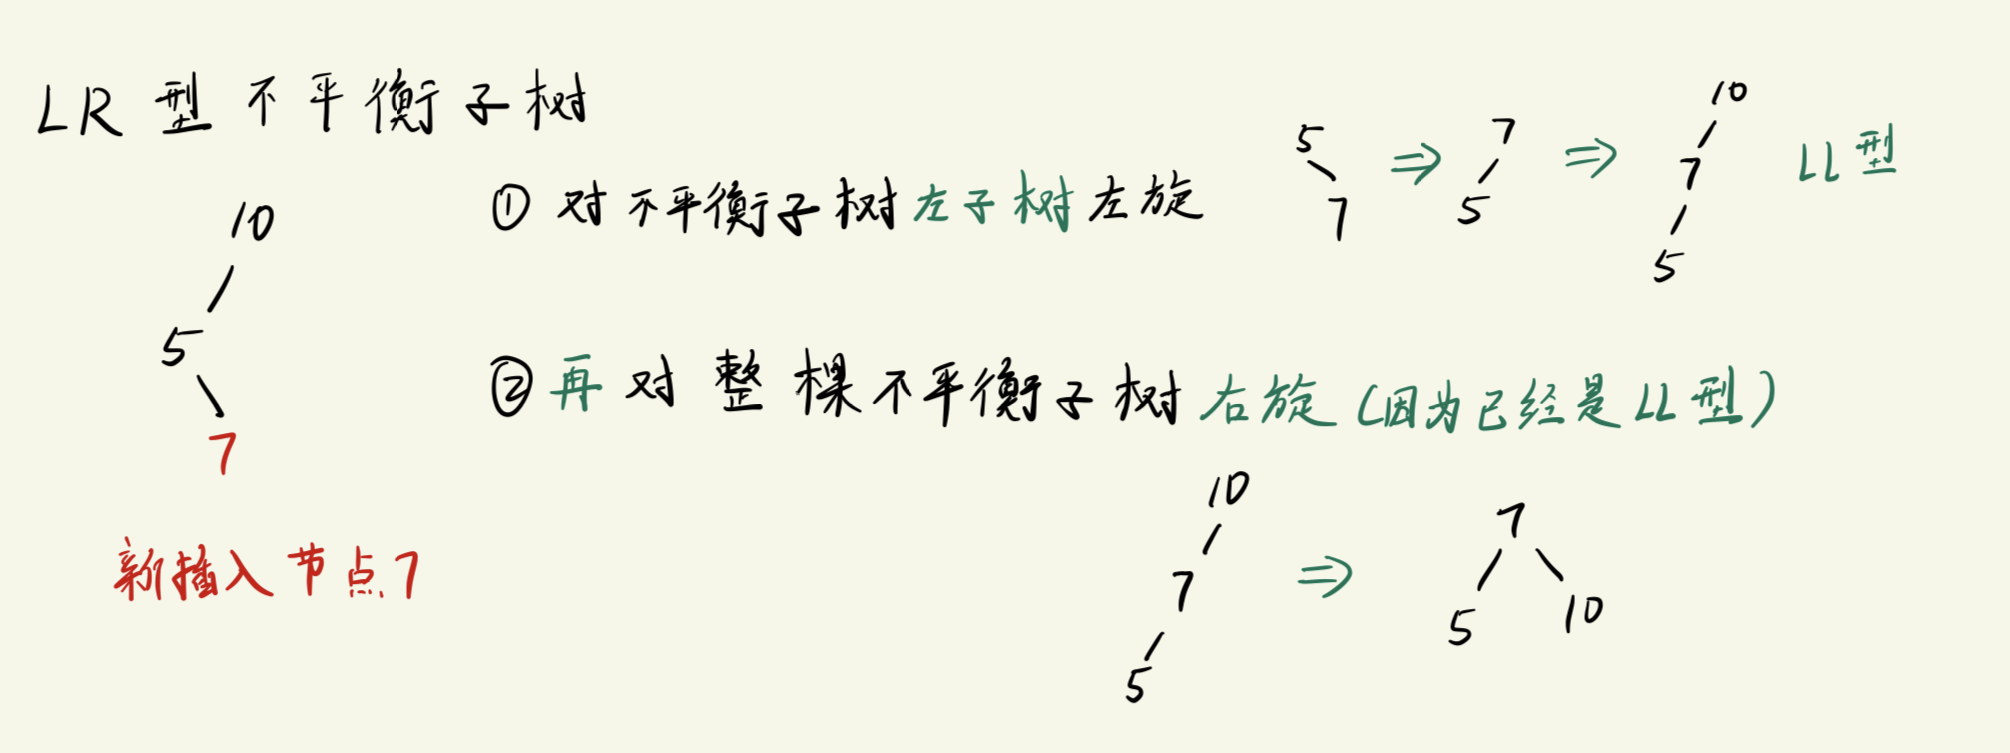 LR 型不平衡子树
10
5
7
新插入节点7
① 对不平衡子树左子树左旋
5 ⇒ 7 ⇒ 10 LL型
7 5 7
5
② 再对整棵不平衡子树右旋(因为已经是LL型)
10
7 ⇒ 7
5 5 10